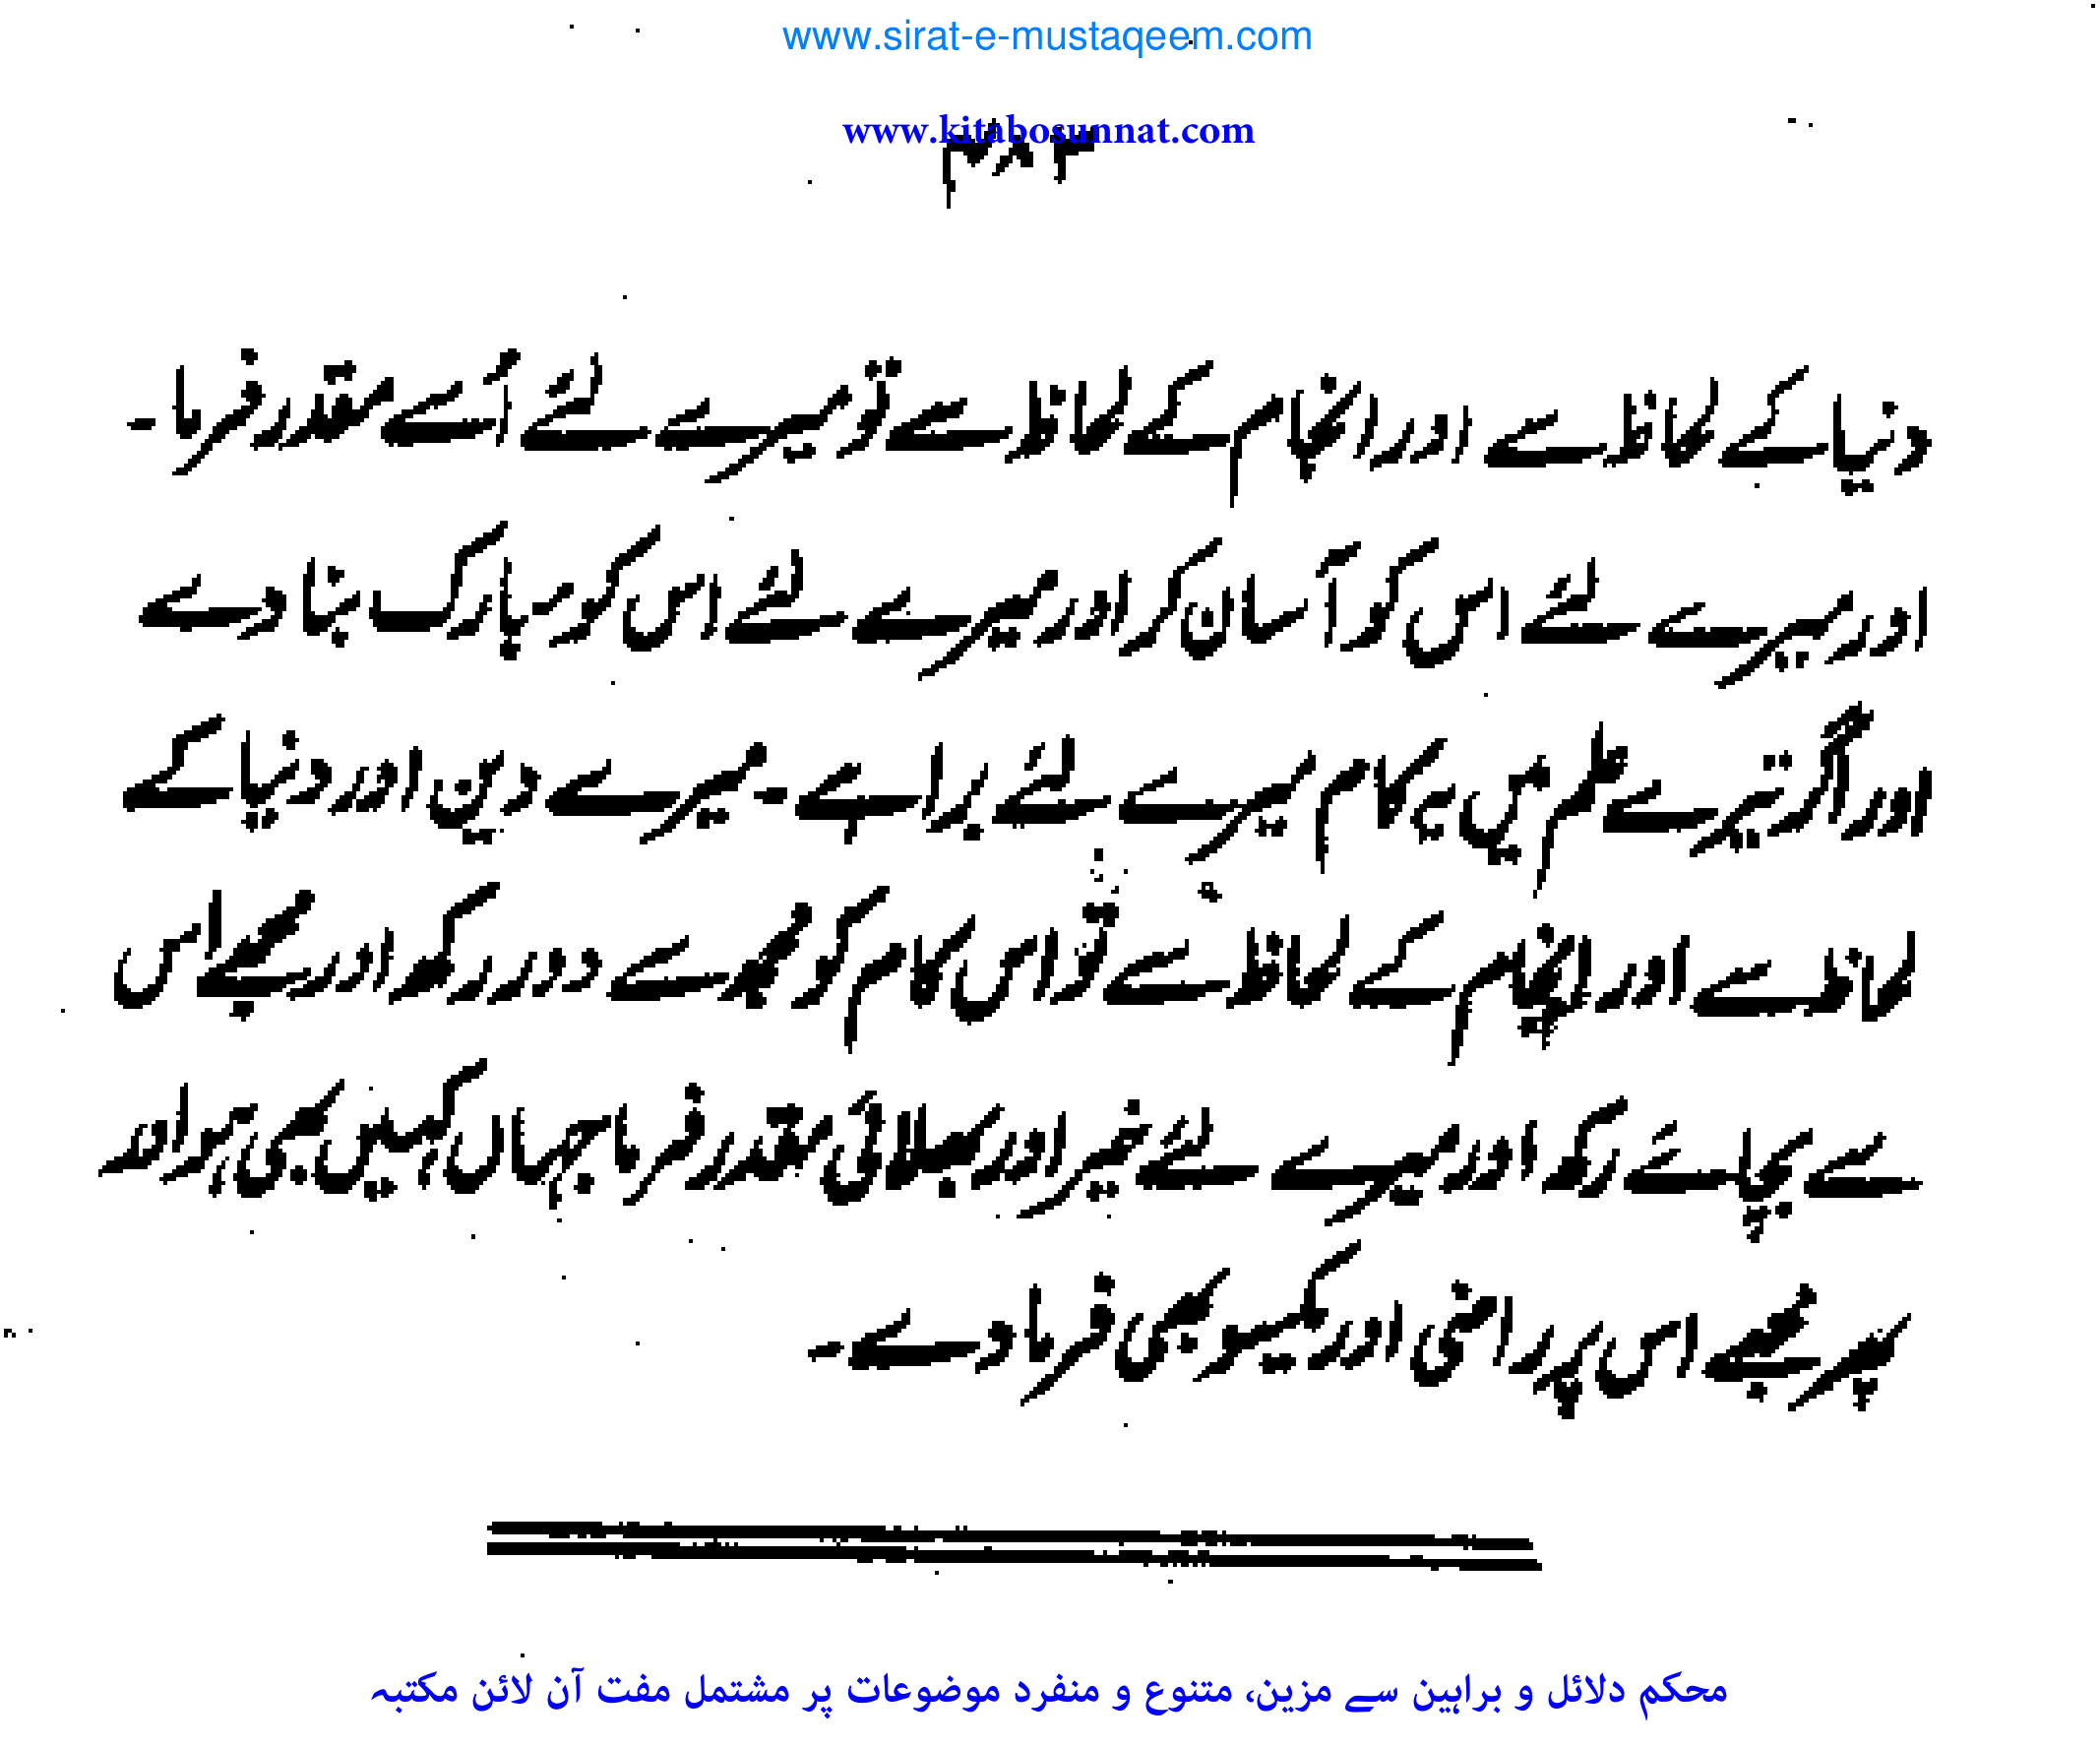 www.sirat-e-mustaqeem.com
www.kitabosunnat.com
۳۸۳
دنیا کے لحاظ سے اور انجام کے لحاظ سے تو میرے لئے اُسے مقدر فرما ۔
اور میرے لئے اس کو آسان کر اور میرے لئے اس کو مبارک بنا دے
اور اگر تیرے علم میں یہ کام میرے لئے برا ہے ۔ میرے دین اور دنیا کے
لحاظ سے اور انجام کے لحاظ سے تو اس کام کو مجھ سے دور رکھ اور مجھے اس
سے بچائے رکھ اور میرے لئے خیر اور بھلائی مقدر فرما جہاں کہیں بھی ہو اور
پھر مجھے اس پر راضی اور یکسو بھی فرما دے ۔
محکم دلائل و براہین سے مزین، متنوع و منفرد موضوعات پر مشتمل مفت آن لائن مکتبہ